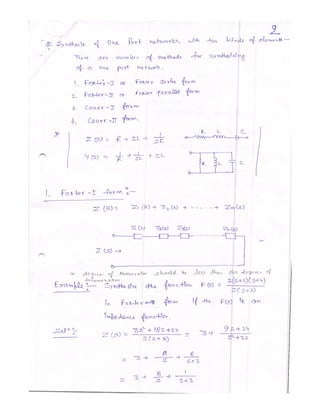 2
* Synthesis of One Port networks with two kinds of elements -
There are number of methods for synthesizing
of a one port network.
1. Foster-I or Foster Series form
2. Foster-II or Foster parallel form
3 Cauer-I form
4. Cauer-II form.
Z(S) = R + SL + 1/SC
R L C
Y(S) = 1/R + 1/SL + SC
R L C
1. Foster-I form :
Z(S) = Z1(S) + Z2(S) + ------ + Zn(S)
Z1(S) Z2(S) Z3(S) Zn(S)
Z(S) →
* degree of Numerator should be less than the degree of
denominator
Example :- Synthesize the function F(S) = 3(S+2)(S+4) / S(S+3)
in Foster form if the F(S) is an
impedance function.
Soln :- Z(S) = 3S² + 18S + 24 / S(S+3) = 3 + 9S+24 / S²+3S
= 3 + A/S + B/S+3
= 3 + 8/S + 1/S+3